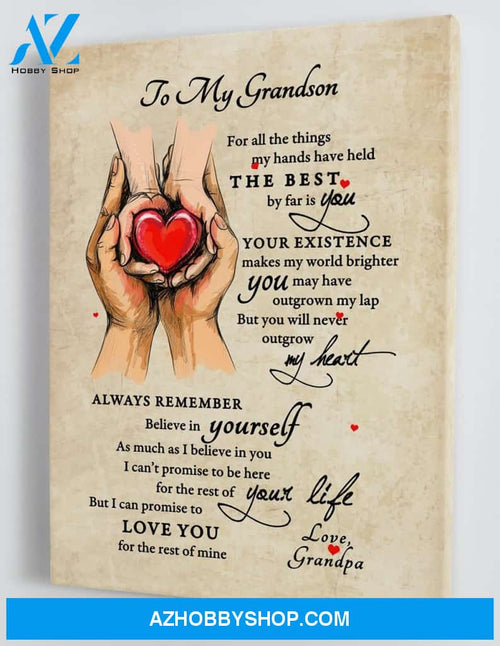 AZ
HOBBY SHOP
To My Grandson
For all the things
my hands have held
THE BEST
by far is you
YOUR EXISTENCE
makes my world brighter
you may have
outgrown my lap
But you will never
outgrow
my heart
ALWAYS REMEMBER
Believe in yourself
As much as I believe in you
I can't promise to be here
for the rest of your life
But I can promise to
LOVE YOU
for the rest of mine
Love,
Grandpa
AZHOBBYSHOP.COM